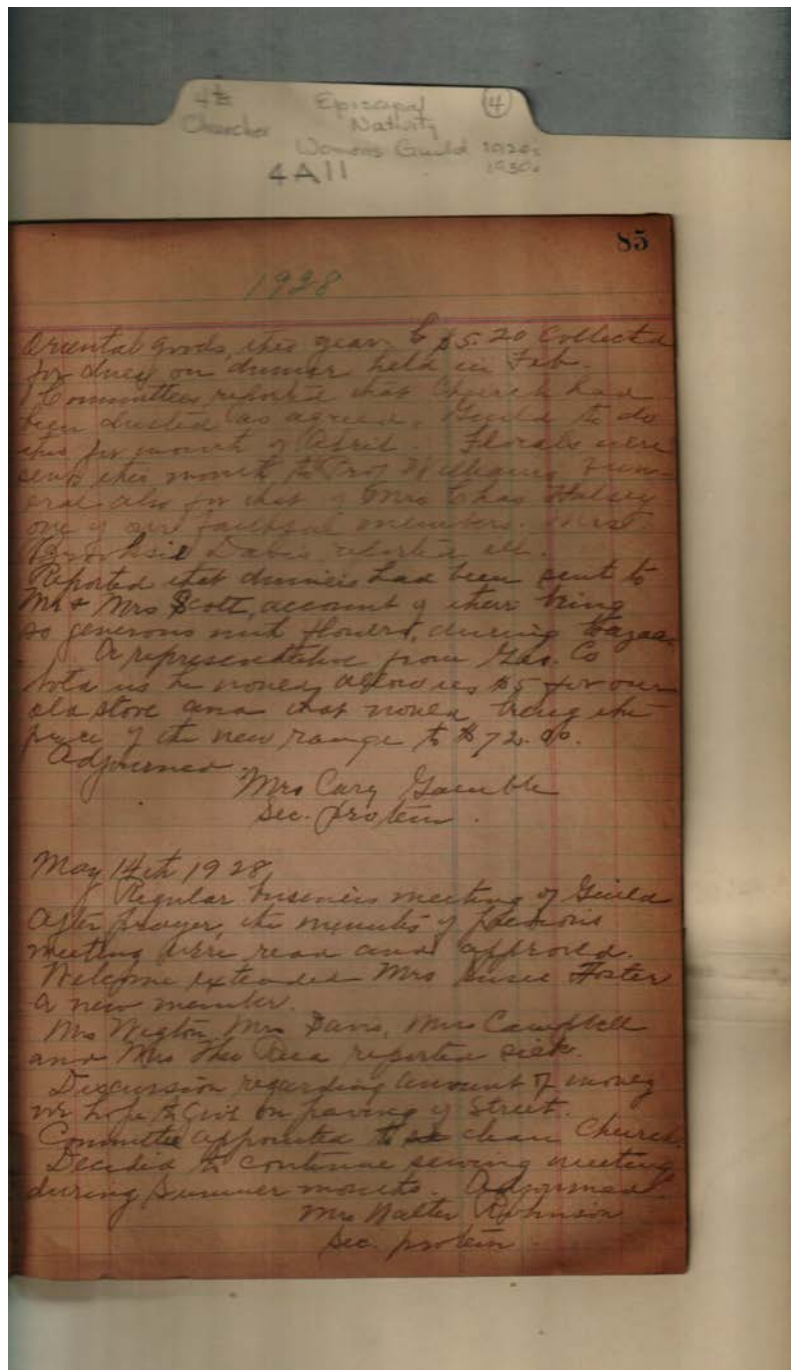 4th Episcopal 4
Churches Nativity
Womens Guild 1920s
4A11 1930s
85
1928
Oriental goods, this year. $5.20 Collected
for dues on dinner held in Feb.
Committees reported that Church had
been dusted as agreed. Guild to do
this for month of April. Florals were
sent this month to Prof Fun-
eral also for that of Mrs Chas Halsey
one of our faithful members. Mrs
Davis reported ill.
Reported that dinners had been sent to
Mr & Mrs Scott, account of their being
so generous with flowers, during bazaar.
A representative from Gas. Co
told us he would allow us $5 for our
old stove and that would bring the
price of the new range to $72.00.
Adjourned.
Mrs Cary Gamble
Sec. protem.
May 14th 1928
Regular business meeting of Guild
After prayer, the minutes of previous
meeting were read and approved.
Welcome extended Mrs Susie Foster
a new member.
Mrs Mrs Davis, Mrs Campbell
and Mrs Theo Rea reported sick.
Discussion regarding amount of money
we hope to give on paving of Street.
Committee appointed to clean Church.
Decided to continue sewing meeting
during summer months. Adjourned.
Mrs Walter Robinson
Sec. protem.